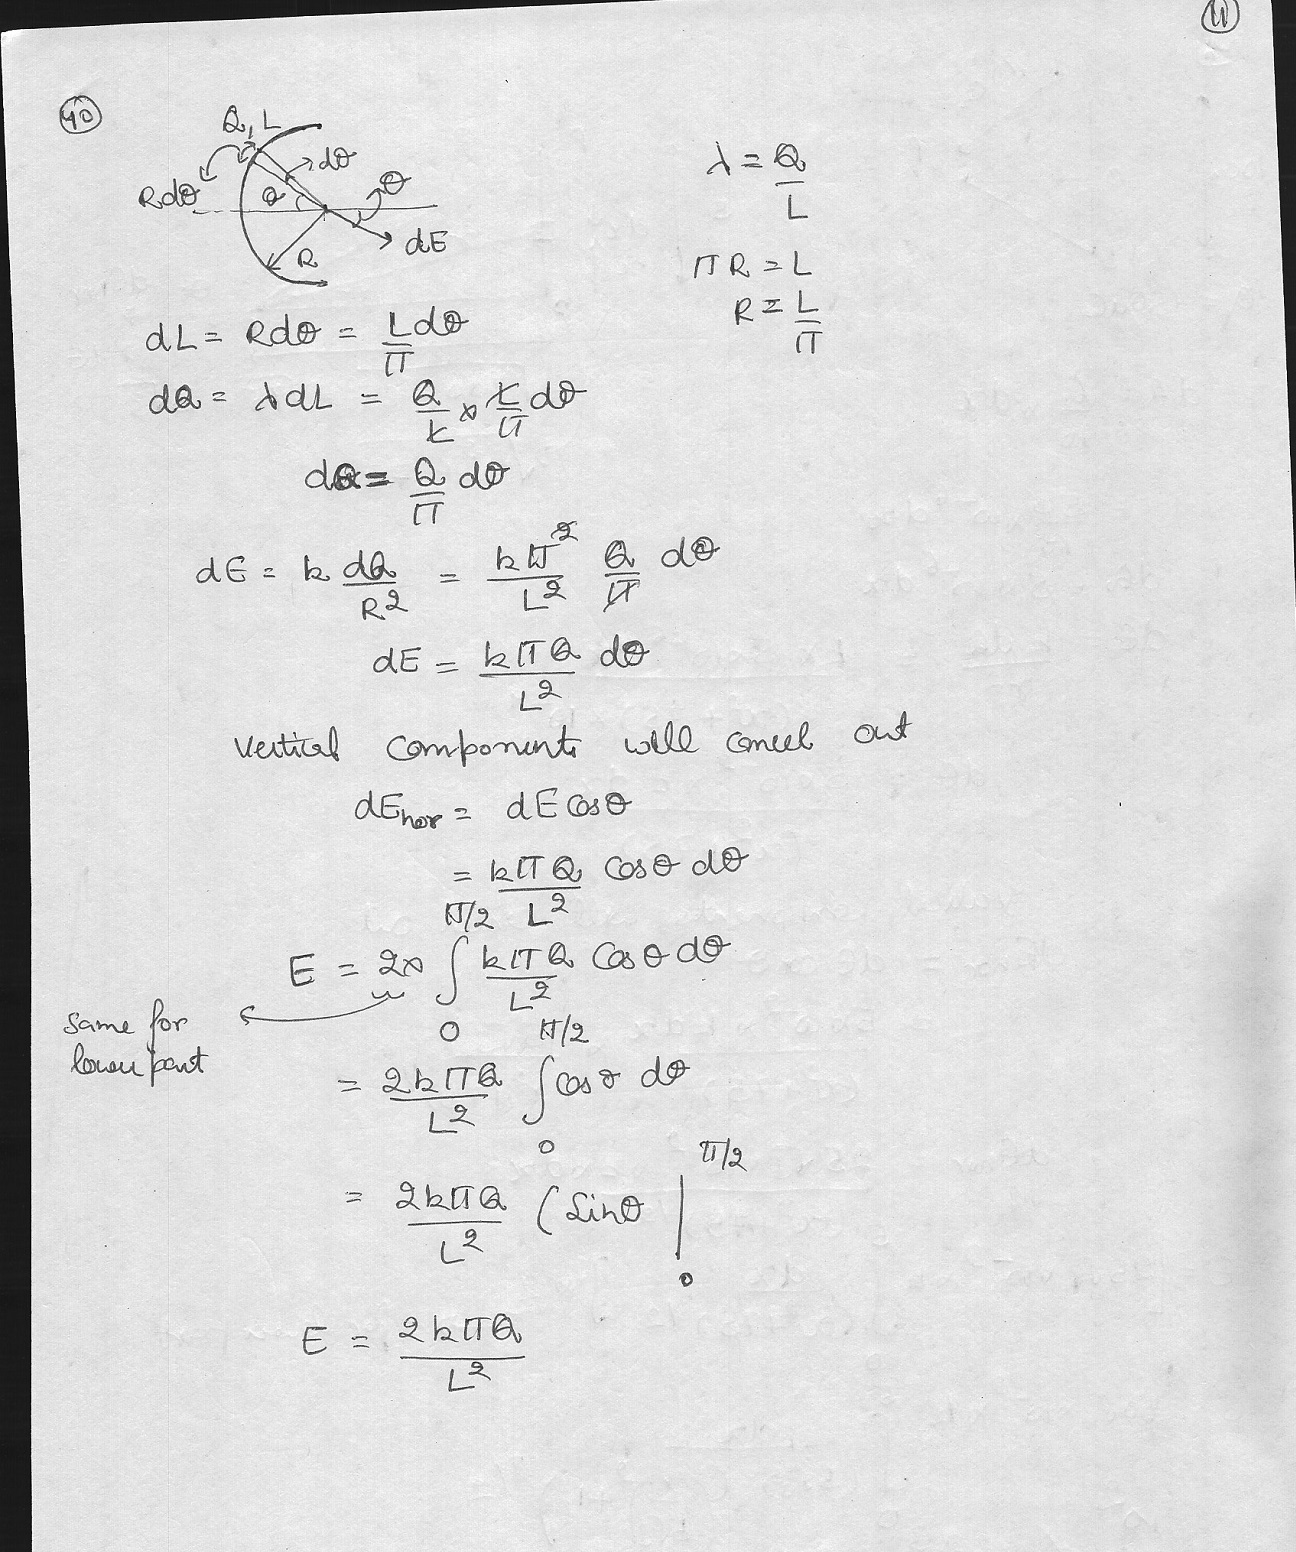 11
40
Q, L
dθ
Rdθ
θ
θ
R
dE
λ = Q/L
πR = L
R = L/π
dL = Rdθ = L/π dθ
dQ = λdL = Q/L × L/π dθ
dQ = Q/π dθ
dE = k dQ/R² = kπ²/L² Q/π dθ
dE = kπQ/L² dθ
Vertical components will cancel out
dEhor = dE Cosθ
= kπQ/L² Cosθ dθ
E = 2× ∫₀^π/2 kπQ/L² Cosθ dθ
Same for
lower part
= 2kπQ/L² ∫₀^π/2 Cosθ dθ
= 2kπQ/L² (Sinθ |₀^π/2
E = 2kπQ/L²